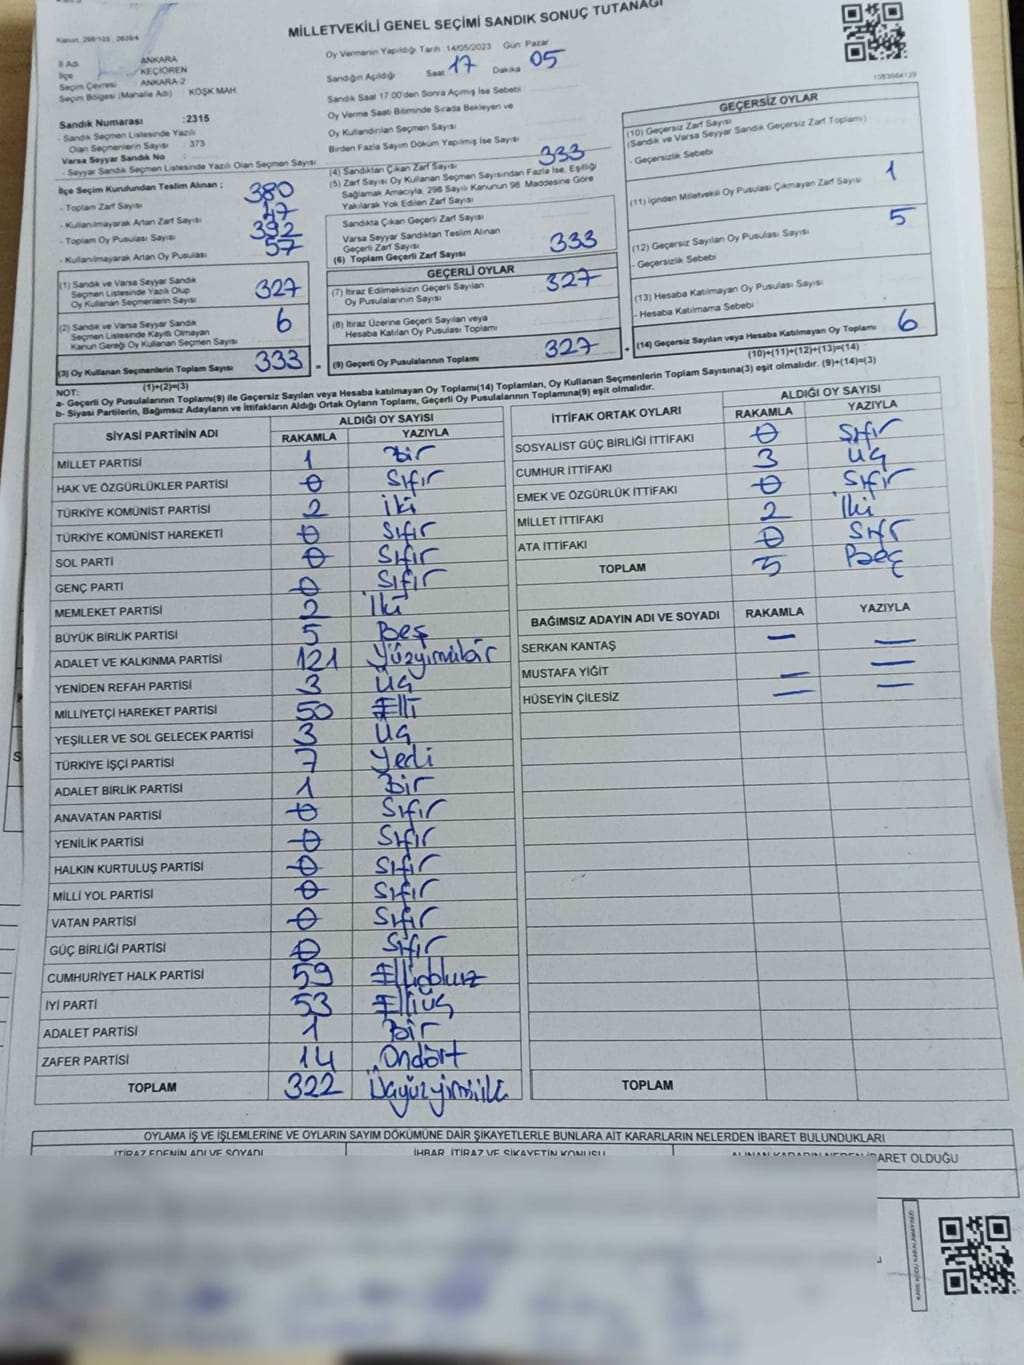 MİLLETVEKİLİ GENEL SEÇİMİ SANDIK SONUÇ TUTANAĞI
İl Adı ANKARA
İlçe KEÇİÖREN
Seçim Çevresi ANKARA-2
Seçim Bölgesi (Mahalle Adı) : KÖŞK MAH.
Sandık Numarası :2315
- Sandık Seçmen Listesinde Yazılı
Olan Seçmenlerin Sayısı : 373
Varsa Seyyar Sandık No
- Seyyar Sandık Seçmen Listesinde Yazılı Olan Seçmen Sayısı
İlçe Seçim Kurulundan Teslim Alınan ;
- Toplam Zarf Sayısı 380
- Kullanılmayarak Artan Zarf Sayısı
- Toplam Oy Pusulası Sayısı 392
- Kullanılmayarak Artan Oy Pusulası 57
(1) Sandık ve Varsa Seyyar Sandık
Seçmen Listesinde Yazılı Olup
Oy Kullanan Seçmenlerin Sayısı 327
(2) Sandık ve Varsa Seyyar Sandık
Seçmen Listesinde Kayıtlı Olmayan
Kanun Gereği Oy Kullanan Seçmen Sayısı 6
(3) Oy Kullanan Seçmenlerin Toplam Sayısı 333
(1)+(2)=(3)
Oy Vermenin Yapıldığı Tarih :14/05/2023 Gün: Pazar
Sandığın Açıldığı Saat 17 Dakika : 05
Sandık Saat 17.00'den Sonra Açmış İse Sebebi
Oy Verme Saati Bitiminde Sırada Bekleyen ve
Oy Kullandırılan Seçmen Sayısı
Birden Fazla Sayım Döküm Yapılmış İse Sayısı
(4) Sandıktan Çıkan Zarf Sayısı 333
(5) Zarf Sayısı Oy Kullanan Seçmen Sayısından Fazla İse, Eşitliği
Sağlamak Amacıyla, 298 Sayılı Kanunun 98. Maddesine Göre
Yakılarak Yok Edilen Zarf Sayısı
Sandıkta Çıkan Geçerli Zarf Sayısı
Varsa Seyyar Sandıktan Teslim Alınan
Geçerli Zarf Sayısı
(6) Toplam Geçerli Zarf Sayısı 333
GEÇERLİ OYLAR
(7) İtiraz Edilmeksizin Geçerli Sayılan
Oy Pusulalarının Sayısı 327
(8) İtiraz Üzerine Geçerli Sayılan veya
Hesaba Katılan Oy Pusulası Toplamı
(9) Geçerli Oy Pusulalarının Toplamı 327
1083664120
GEÇERSİZ OYLAR
(10) Geçersiz Zarf Sayısı
(Sandık ve Varsa Seyyar Sandık Geçersiz Zarf Toplamı)
- Geçersizlik Sebebi
(11) İçinden Milletvekili Oy Pusulası Çıkmayan Zarf Sayısı 1
(12) Geçersiz Sayılan Oy Pusulası Sayısı 5
- Geçersizlik Sebebi
(13) Hesaba Katılmayan Oy Pusulası Sayısı
- Hesaba Katılmama Sebebi
(14) Geçersiz Sayılan veya Hesaba Katılmayan Oy Toplamı 6
(10)+(11)+(12)+(13)=(14)
NOT:
a- Geçerli Oy Pusulalarının Toplamı(9) ile Geçersiz Sayılan veya Hesaba katılmayan Oy Toplamı(14) Toplamları, Oy Kullanan Seçmenlerin Toplam Sayısına(3) eşit olmalıdır. (9)+(14)=(3)
b- Siyasi Partilerin, Bağımsız Adayların ve İttifakların Aldığı Ortak Oyların Toplamı, Geçerli Oy Pusulalarının Toplamına(9) eşit olmalıdır.
SİYASİ PARTİNİN ADI ALDIĞI OY SAYISI
RAKAMLA YAZIYLA
MİLLET PARTİSİ 1 Bir
HAK VE ÖZGÜRLÜKLER PARTİSİ 0 Sıfır
TÜRKİYE KOMÜNİST PARTİSİ 2 İki
TÜRKİYE KOMÜNİST HAREKETİ 0 Sıfır
SOL PARTİ 0 Sıfır
GENÇ PARTİ 0 Sıfır
MEMLEKET PARTİSİ 2 İki
BÜYÜK BİRLİK PARTİSİ 5 Beş
ADALET VE KALKINMA PARTİSİ 121 Yüzyirmibir
YENİDEN REFAH PARTİSİ 3 Üç
MİLLİYETÇİ HAREKET PARTİSİ 50 Elli
YEŞİLLER VE SOL GELECEK PARTİSİ 3 Üç
TÜRKİYE İŞÇİ PARTİSİ 7 Yedi
ADALET BİRLİK PARTİSİ 1 Bir
ANAVATAN PARTİSİ 0 Sıfır
YENİLİK PARTİSİ 0 Sıfır
HALKIN KURTULUŞ PARTİSİ 0 Sıfır
MİLLİ YOL PARTİSİ 0 Sıfır
VATAN PARTİSİ 0 Sıfır
GÜÇ BİRLİĞİ PARTİSİ 0 Sıfır
CUMHURİYET HALK PARTİSİ 59 Ellidokuz
İYİ PARTİ 53 Elliüç
ADALET PARTİSİ 1 Bir
ZAFER PARTİSİ 14 Ondört
TOPLAM 322 Üçyüzyirmiiki
İTTİFAK ORTAK OYLARI ALDIĞI OY SAYISI
RAKAMLA YAZIYLA
SOSYALİST GÜÇ BİRLİĞİ İTTİFAKI 0 Sıfır
CUMHUR İTTİFAKI 3 Üç
EMEK VE ÖZGÜRLÜK İTTİFAKI 0 Sıfır
MİLLET İTTİFAKI 2 İki
ATA İTTİFAKI 0 Sıfır
TOPLAM 5 Beş
BAĞIMSIZ ADAYIN ADI VE SOYADI RAKAMLA YAZIYLA
SERKAN KANTAŞ — —
MUSTAFA YİĞİT — —
HÜSEYİN ÇİLESİZ — —
TOPLAM
OYLAMA İŞ VE İŞLEMLERİNE VE OYLARIN SAYIM DÖKÜMÜNE DAİR ŞİKAYETLERLE BUNLARA AİT KARARLARIN NELERDEN İBARET BULUNDUKLARI
İTİRAZ EDENİN ADI VE SOYADI İHBAR, İTİRAZ VE ŞİKAYETİN KONUSU ALINAN KARARIN NEDEN İBARET OLDUĞU